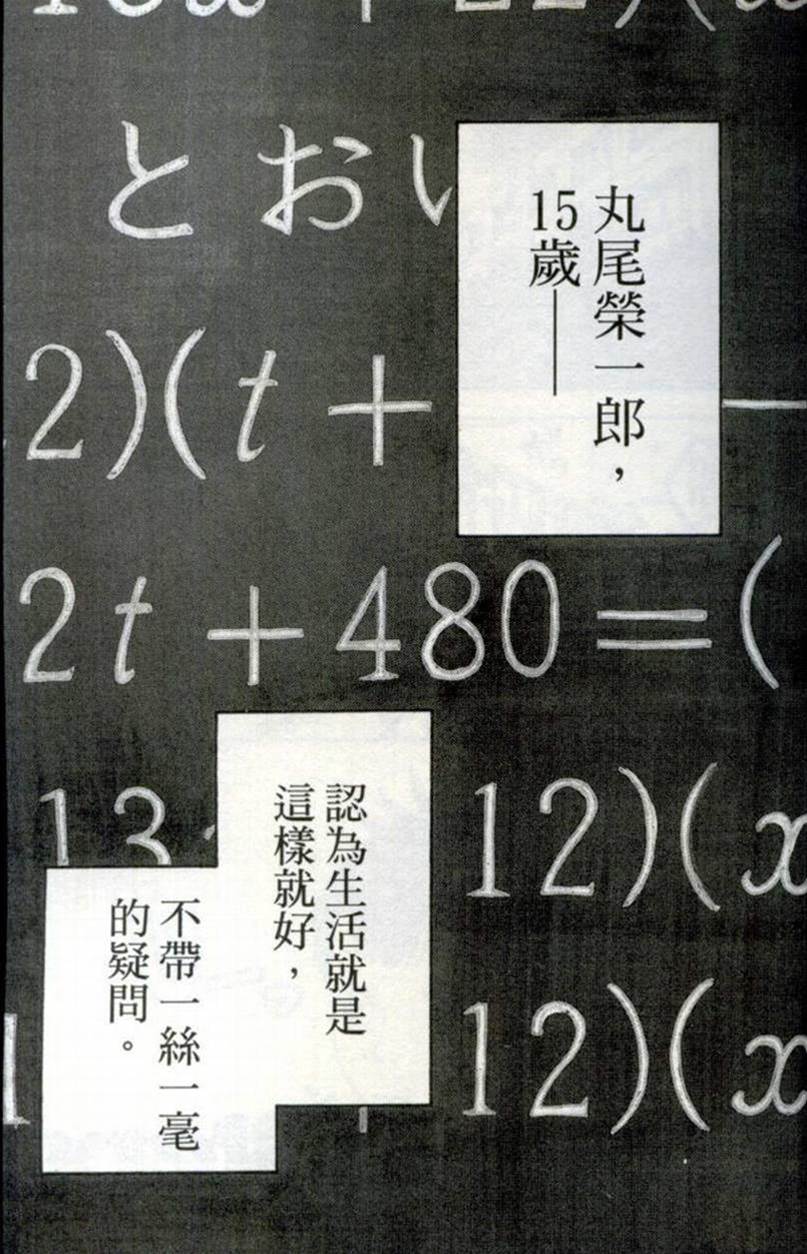 丸尾榮一郎，
15歲——
認為生活就是
這樣就好，
不帶一絲一毫
的疑問。
とおい
2)(t+
2t+480=(
13
12)(x
12)(x